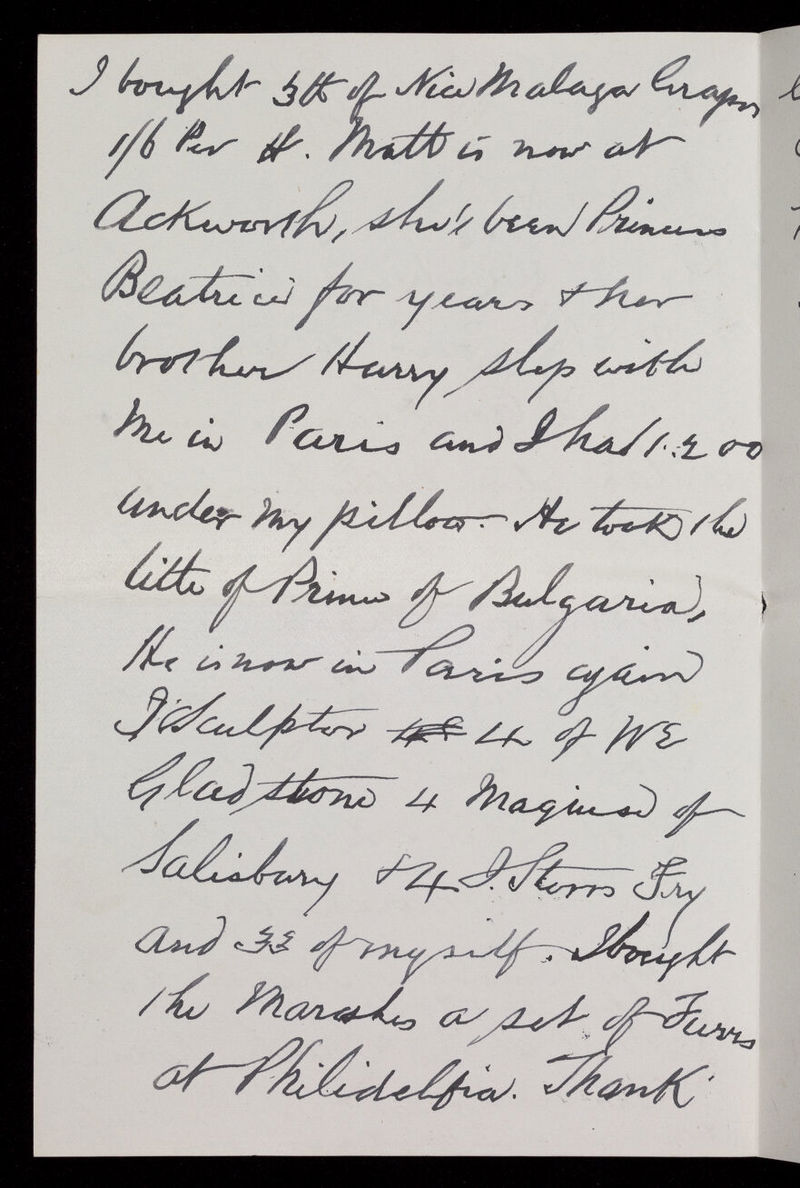 I bought 3 lb of Nice Malaga Grapes
1/6 Per lb. Matt is now at
Ackworth, she's been Princess
Beatrice for years & her
brother Harry slep with
me in Paris and I had 1.£00
under my pillow. He took the
title of Prince of Bulgaria,
He is now in Paris again
I Sculptor 4 of WE
Gladstone 4 of
Salisbury & 4 J. Storrs Fry
and 33 of myself. I bought
the a set of Furrs
at Philidelfia. Thank